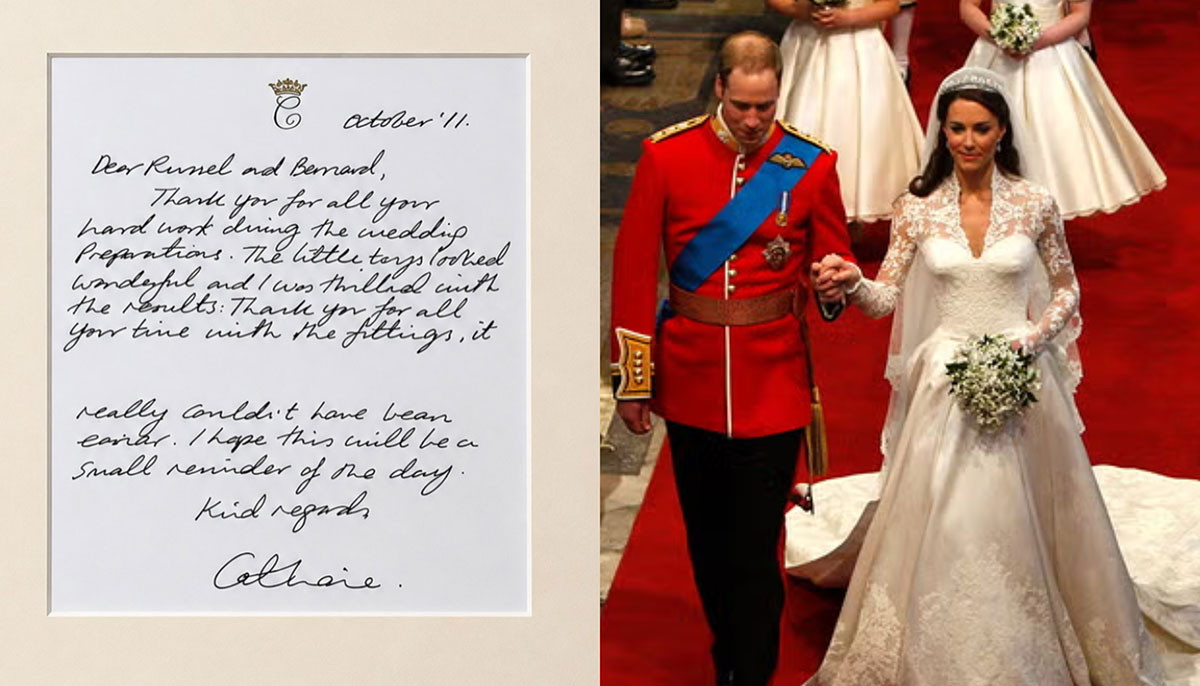 C
October '11.
Dear Russel and Bernard,
Thank you for all your
hard work during the wedding
preparations. The little boys looked
wonderful and I was thrilled with
the results. Thank you for all
your time with the fittings, it
really couldn't have been
easier. I hope this will be a
small reminder of the day.
Kind regards
Catherine.